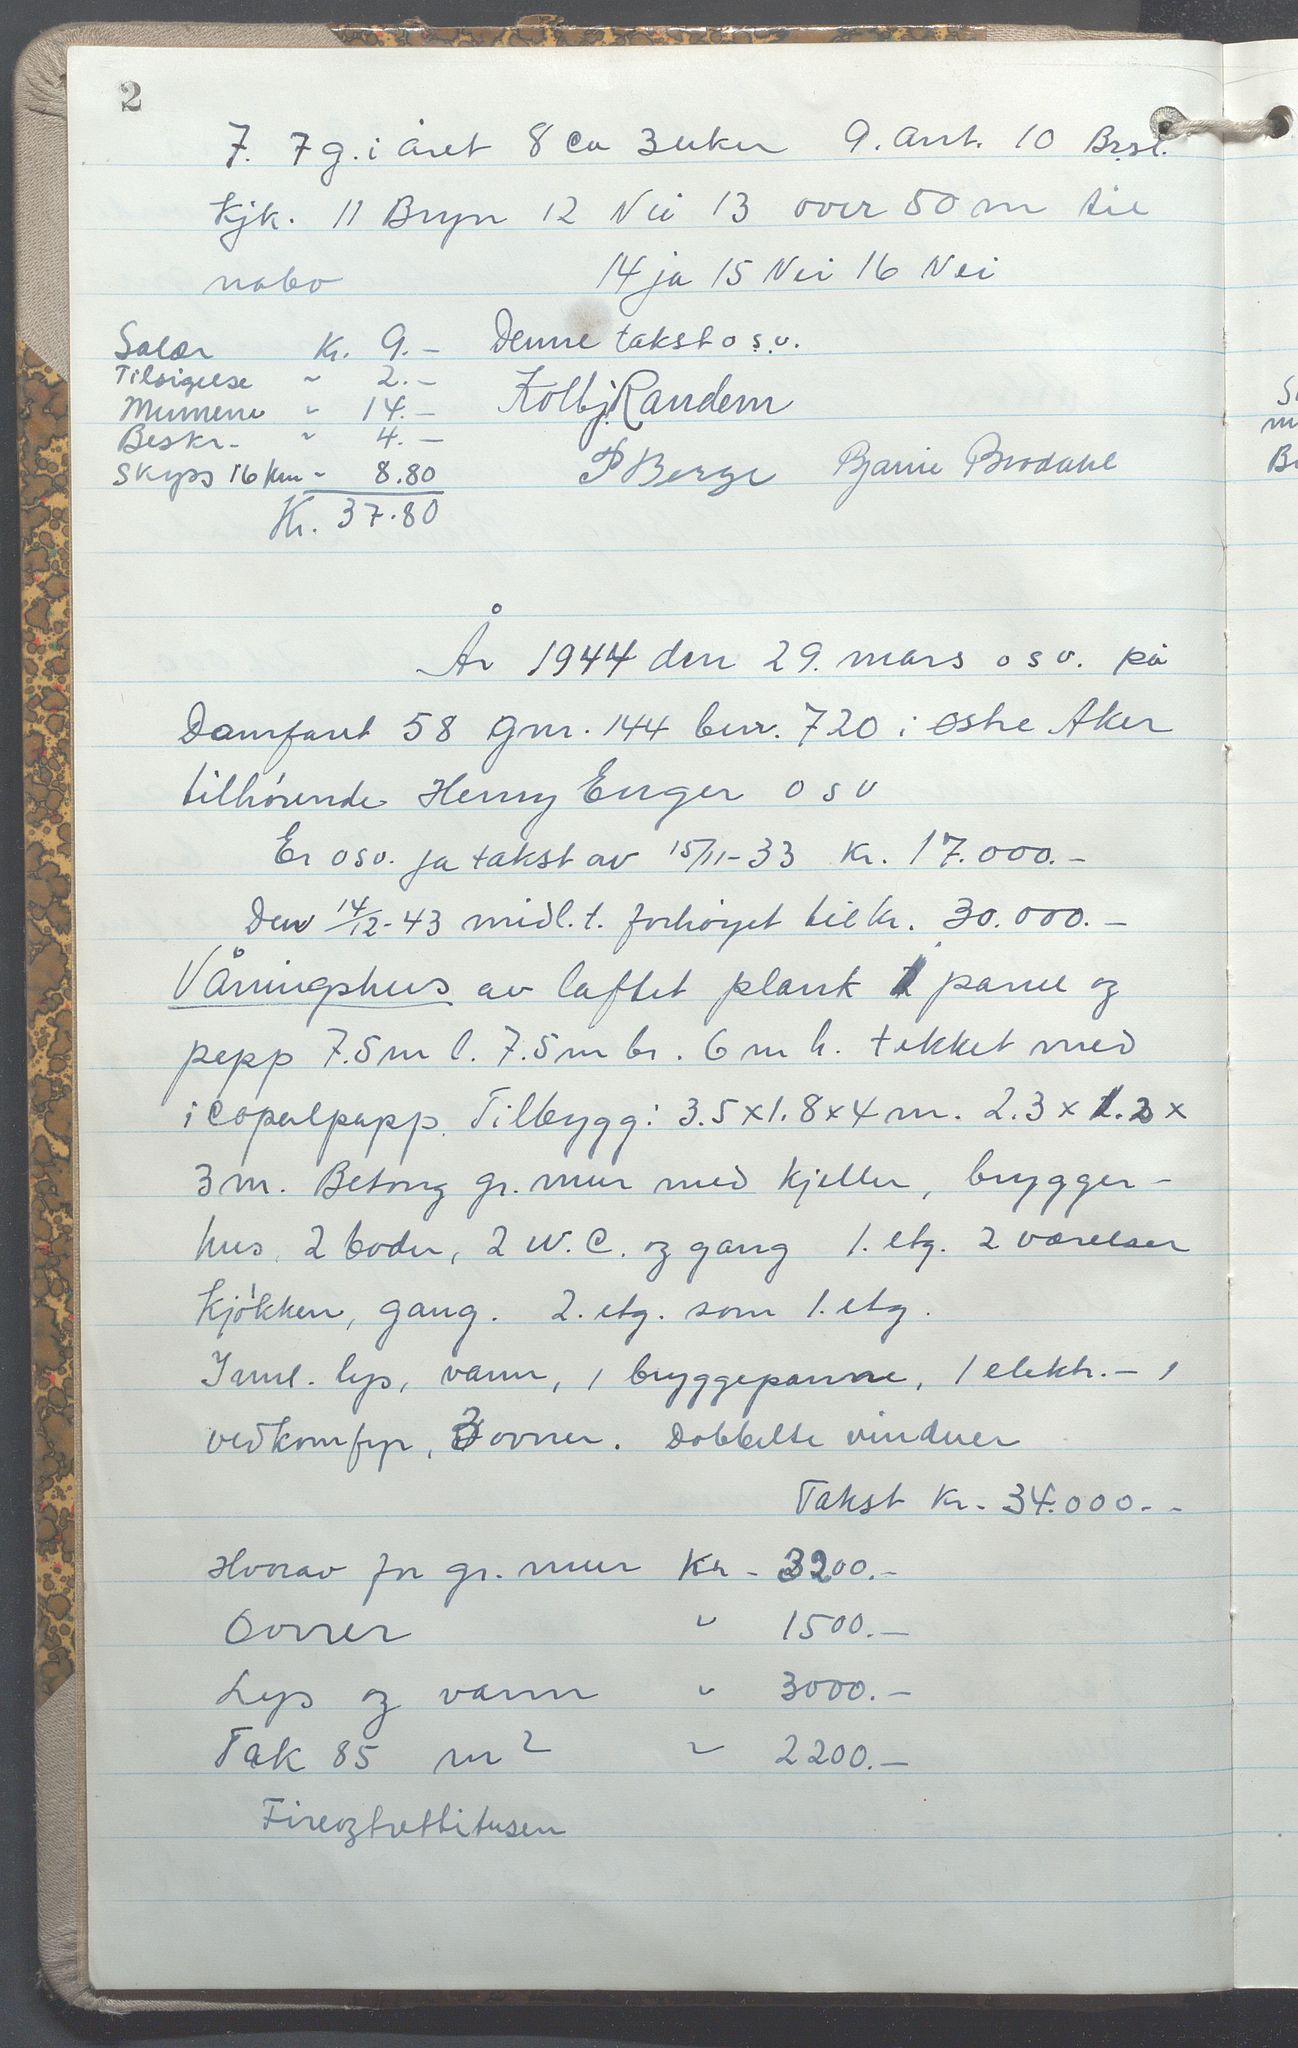 2
7. 7 g. i året 8 ca 3 uker 9. ant. 10 Br.sl.
kjk. 11 Bryn 12 Nei 13 over 50 m til
nabo 14 ja 15 Nei 16 Nei
Salær Kr. 9.– Denne takst o s. v.
Tilsigelse " 2.–
Kolbj. Randem
" 14.–
Beskr. " 4.–
P Berge Bjarne Brodahl
Skyss 16 km " 8.80
Kr. 37.80
År 1944 den 29. mars o s v. på
Damfaret 58 gnr. 144 bnr. 720 i østre Aker
tilhørende Henny Enger o s v
Er osv. ja takst av 15/11-33 Kr. 17.000.–
Den 14/12-43 midl. t. forhøyet til kr. 30.000.–
Våningshus av laftet plank 1 panel og
papp 7.5 m l. 7.5 m br. 6 m h. tekket med
icopalpapp. Tilbygg: 3.5 x 1.8 x 4 m. 2.3 x 1.2 x
3 m. Betong gr. mur med kjeller, brygger-
hus, 2 boder, 2 W.C. og gang 1. etg. 2 værelser
kjøkken, gang. 2. etg. som 1. etg.
Innl. lys, vann, 1 bryggepanne, 1 elektr. – 1
vedkomfyr, 3 ovner. Dobbelte vinduer
Takst Kr. 34.000.–
Hvorav for gr. mur Kr. 3200.–
Ovner " 1500.–
Lys og vann " 3000.–
Tak 85 m2 " 2200.–
Fireogtrettitusen